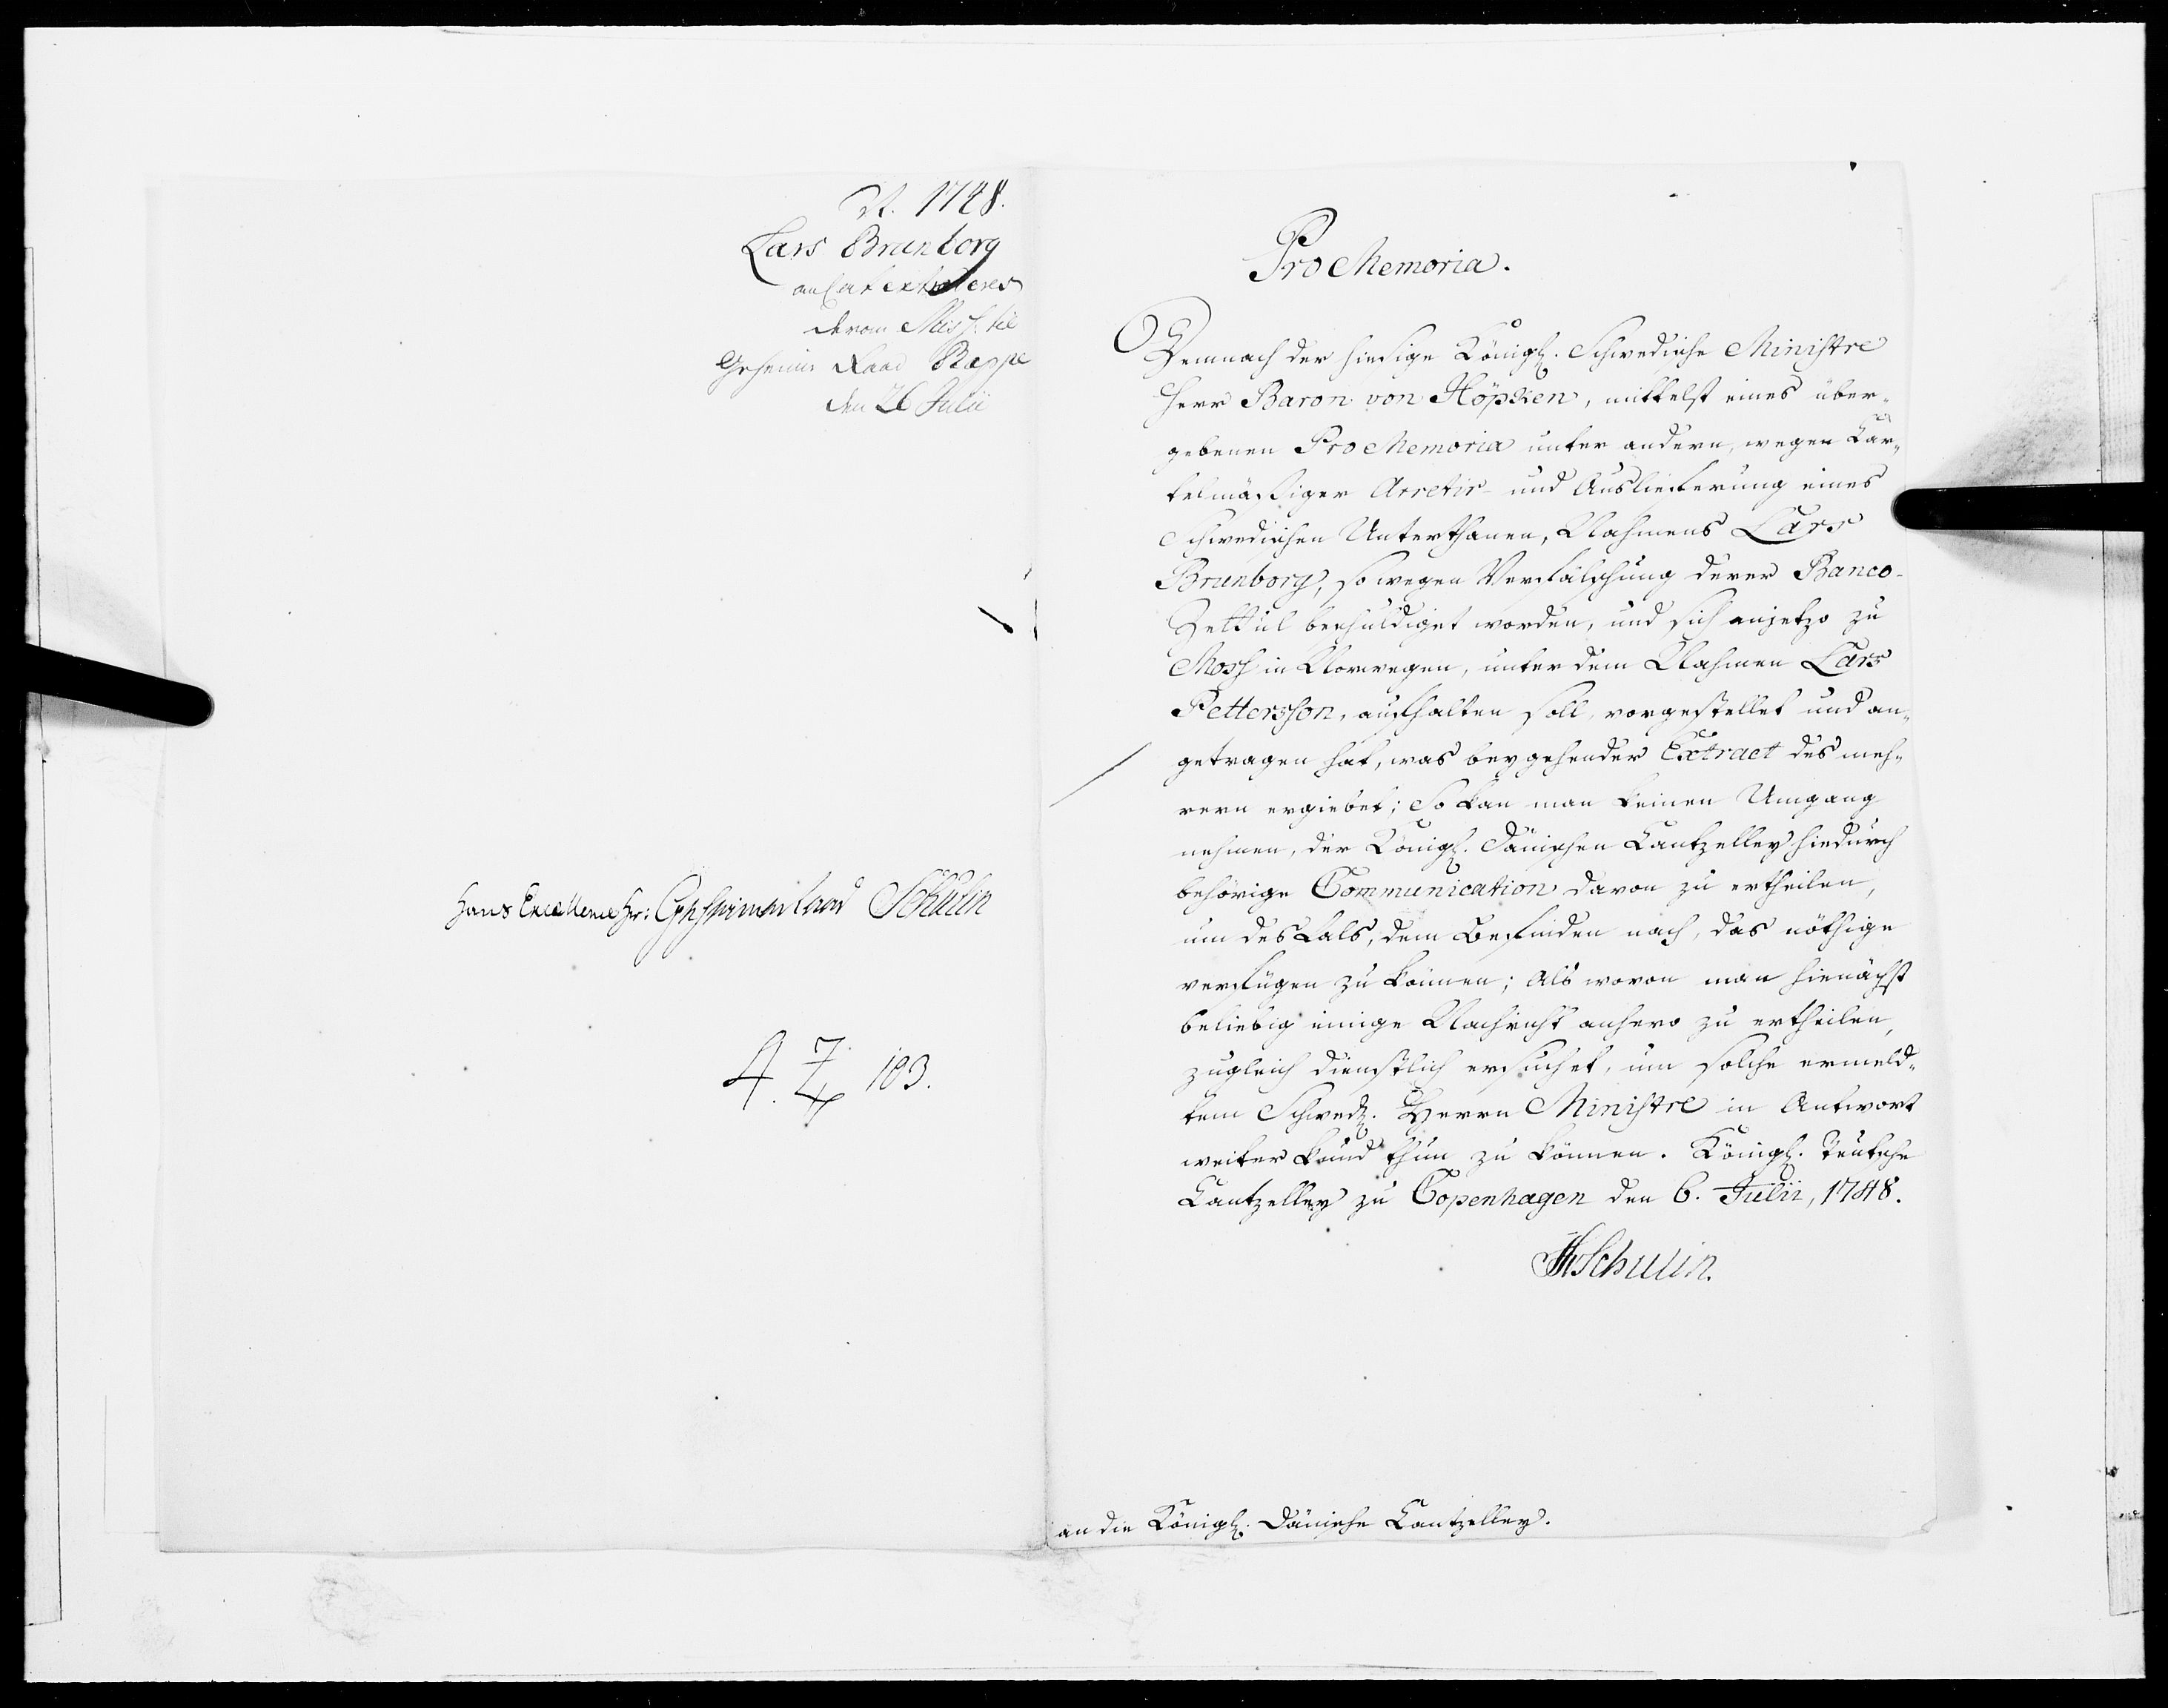 1748.
Lars Brunborg
ang: at extraderes
derom Miss: til
Geheime Raad Rappe
den 26 Julii
Hans Excellence Hr: Geheimeraad Schulin
4. Z 183.
Pro Memoria.
Demnach der hiesige Königl. Schwedische Ministre
Herr Baron von Höpken, mittelst eines über-
gebenen Pro Memoria unter andern, wegen Car-
telmäßiger Arretir- und Auslieferung eines
Schwedischen Unterthanen, Nahmens Lars
Brunborg, so wegen Verfälschung derer Banco-
Zettul beschuldiget worden, und sich anjetzo zu
Moss in Norwegen, unter dem Nahmen Lars
Pettersson, aufhalten soll, vorgestellet und an-
getragen hat, was beygehender Extract des meh-
rern ergiebet; So kan man keinen Umgang
nehmen, der Königl. Dänischen Cantzelley hiedurch
behörige Communication davon zu ertheilen,
um desfals, dem Befinden nach, das nöthige
verfügen zu können; Als wovon man hienächst
beliebig einige Nachricht anhero zu ertheilen,
zugleich dienstlich ersuchet, um solche ermeld-
tem Schwed. Herrn Ministre in Antwort
weiter kund thun zu können. Königl. Teutsche
Cantzelley zu Copenhagen den 6. Julii, 1748.
JHSchulin.
an die Königl. Dänische Cantzelley.